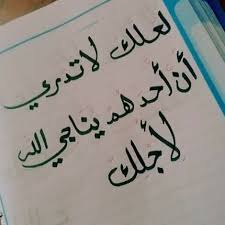 لعلك لا تدري
أن أحدهم يناجي الله
لأجلك